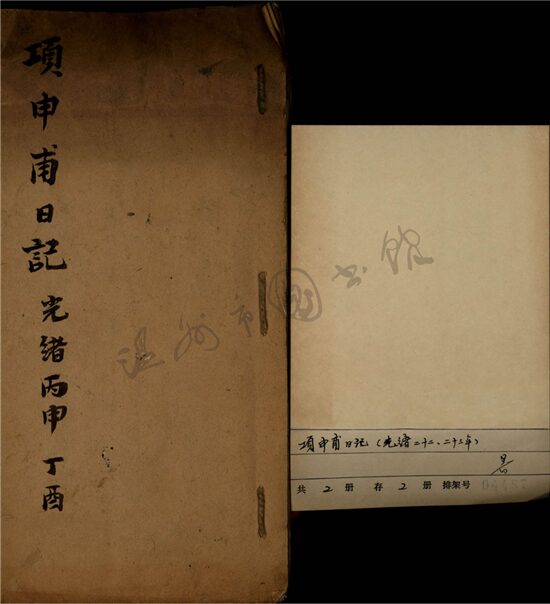 項申甫日記 光緒丙申 丁酉
温州市圖书馆
項申甫日記（光绪二十二、二十三年）
共 2 册 存 2 册 排架号